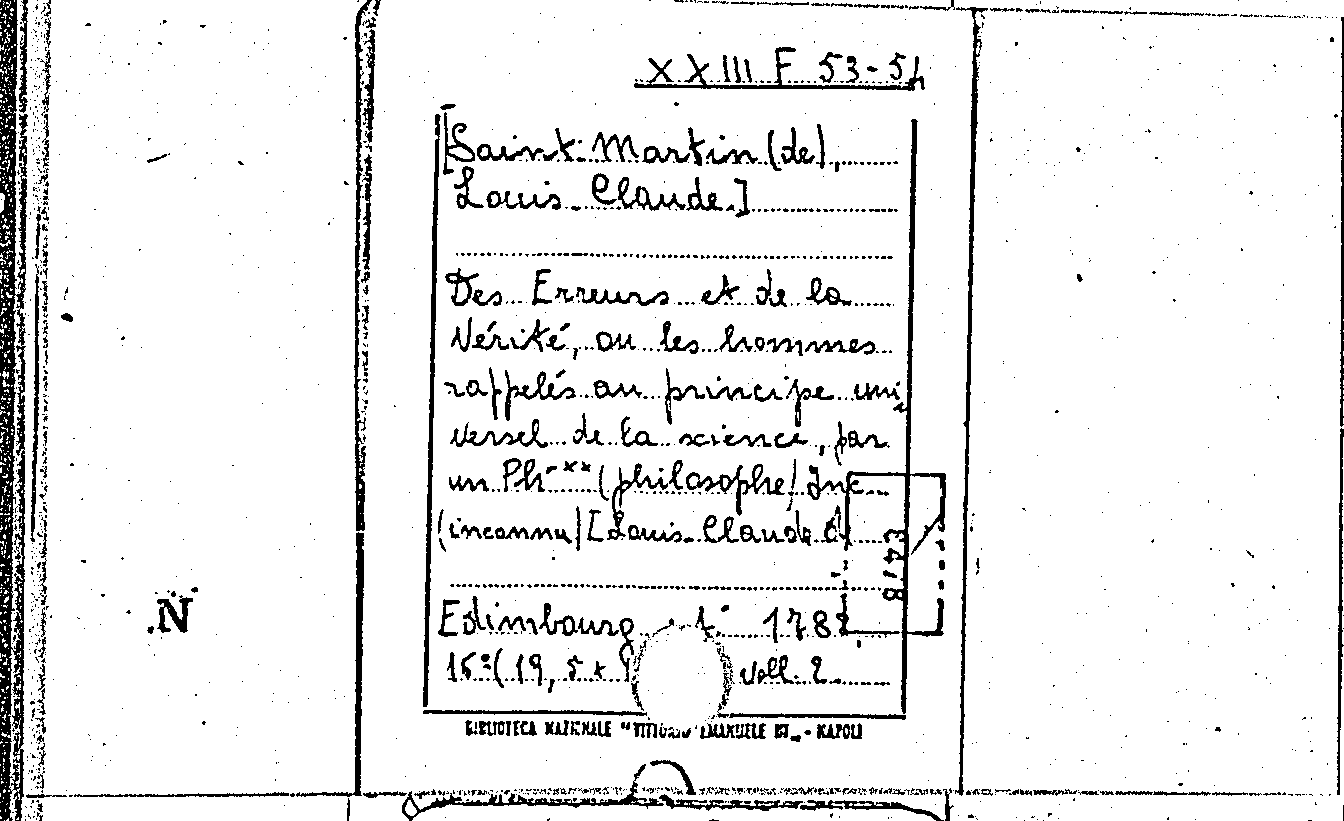 XXIII F 53-54
[Saint-Martin (de),
Louis-Claude.]
Des Erreurs et de la
Vérité, ou les hommes
rappelés au principe uni-
versel de la science, par
un Ph*** (philosophe) Inc...
(inconnu) [Louis-Claude
3418
Edimbourg 1782,
16°(19,5x voll. 2.
N
BIBLIOTECA NAZIONALE "VITTORIO EMANUELE III" - NAPOLI